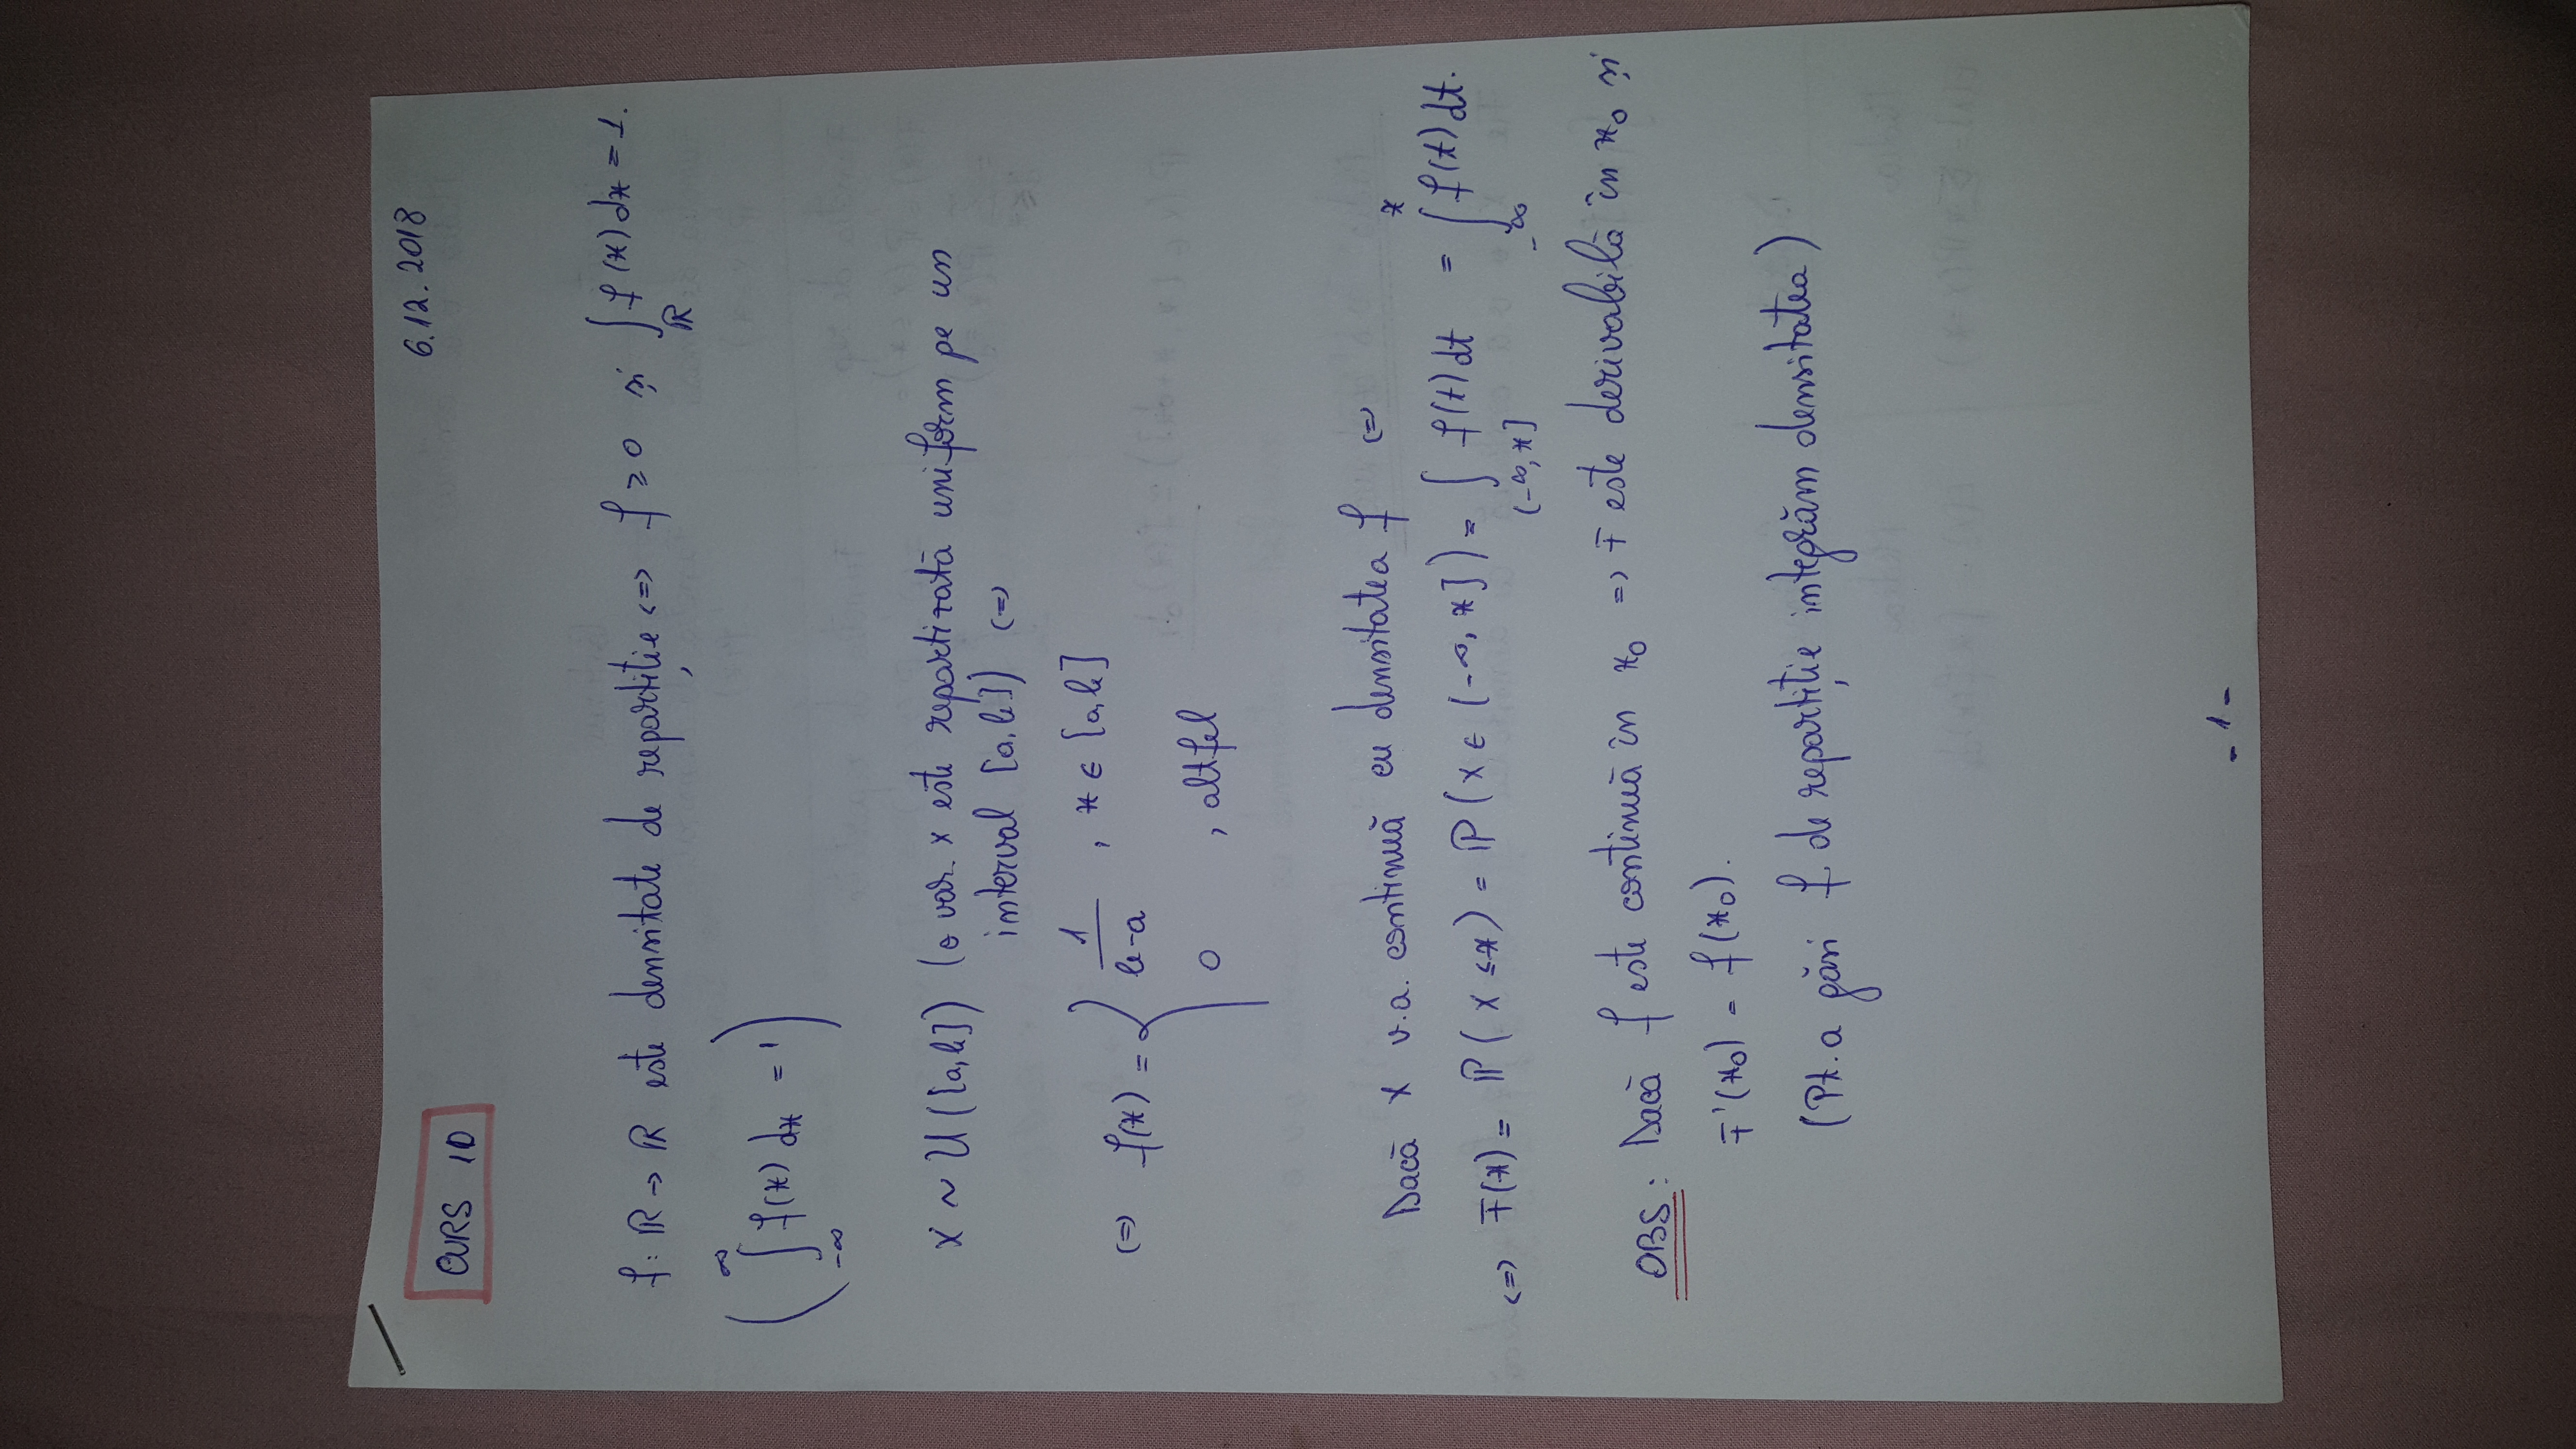 6.12.2018
CURS 10
f: ℝ → ℝ este densitate de repartiție <=> f ≥ 0 și ∫_ℝ f(x) dx = 1.
( ∫_{-∞}^{∞} f(x) dx = 1 )
X ~ U([a,b]) (o var. X este repartizată uniform pe un
interval [a,b]) (=)
(=) f(x) = { 1/(b-a) , x ∈ [a,b]
0 , altfel
Dacă X v.a. continuă cu densitatea f (=)
<=> F(x) = ℙ(X ≤ x) = ℙ(X ∈ (-∞, x]) = ∫_{(-∞,x]} f(t) dt = ∫_{-∞}^{x} f(t) dt.
OBS: Dacă f este continuă în x₀ => F este derivabilă în x₀ și
F'(x₀) = f(x₀).
(Pt. a găsi f. de repartiție integrăm densitatea)
- 1 -